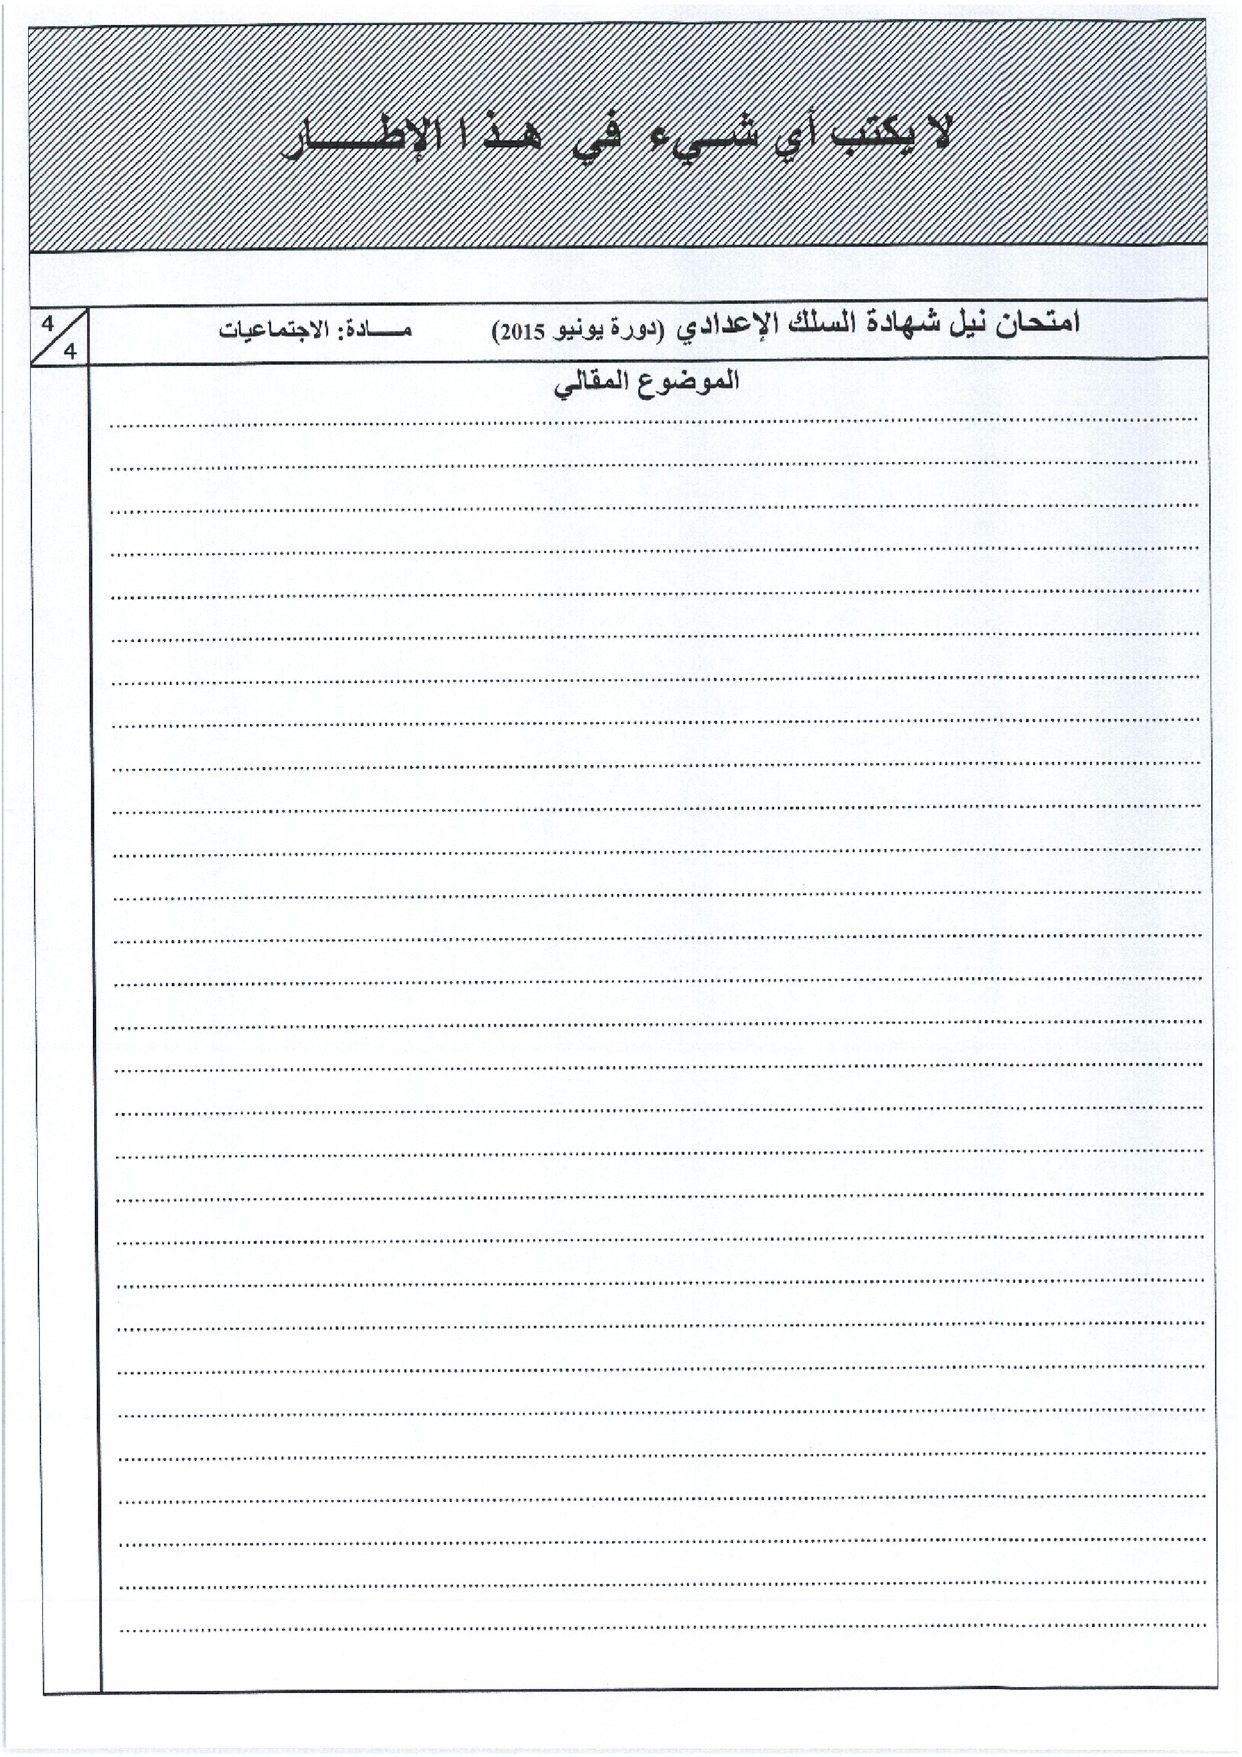 لا يكتب أي شيء في هذا الإطار
امتحان نيل شهادة السلك الإعدادي (دورة يونيو 2015) مادة: الاجتماعيات 4/4
الموضوع المقالي